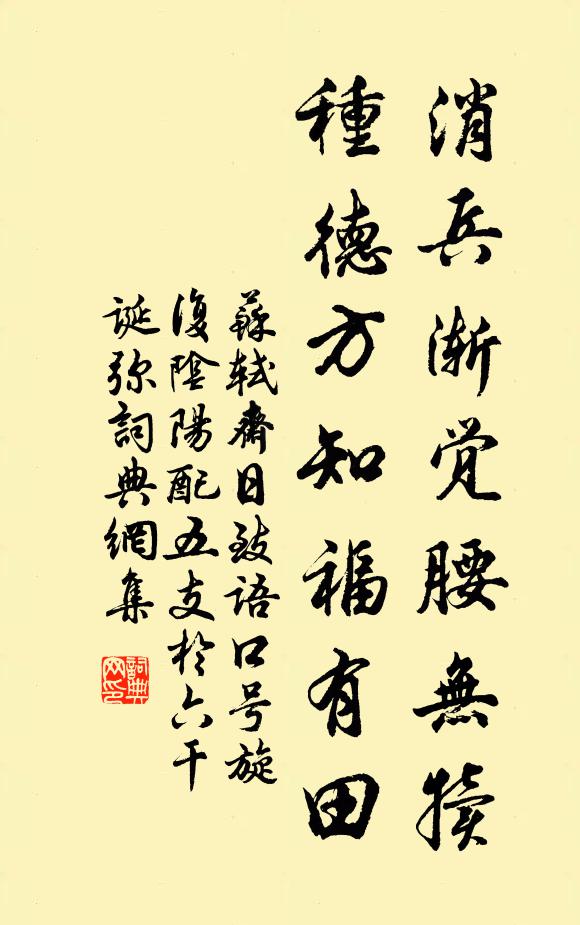 消兵漸觉腰無犢
種德方知福有田
蘇軾齋日致語口号旋
復陰陽配五支於六干
誕弥詞典網集
詞典网印